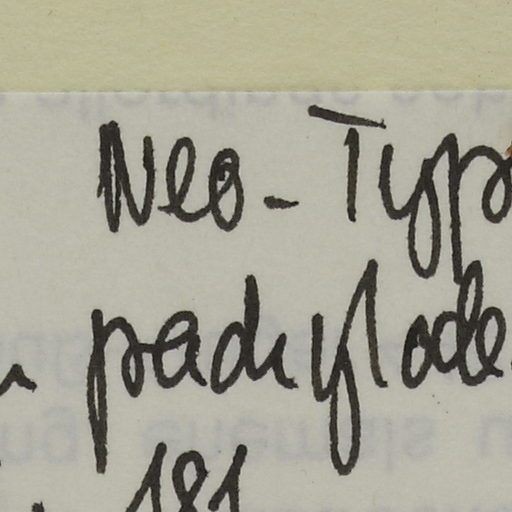 Neo-Typ
pachylode
181